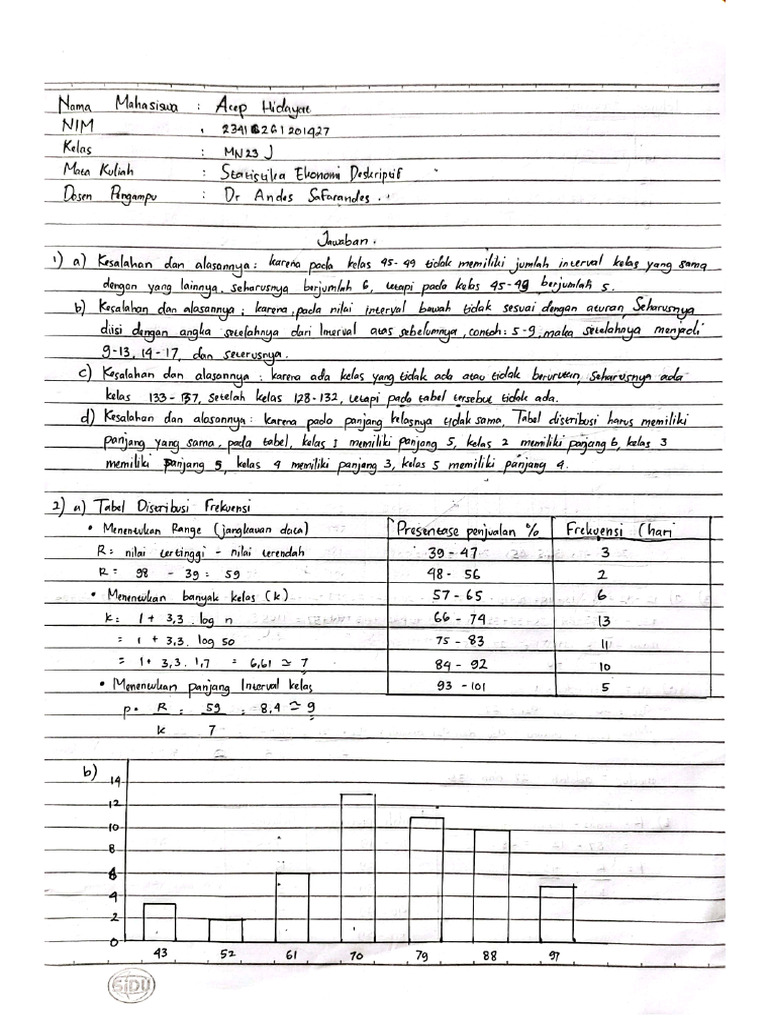 Nama Mahasiswa : Acep Hidayat
NIM : 23416261201427
Kelas : MN23 J
Mata Kuliah : Statistika Ekonomi Deskriptif
Dosen Pengampu : Dr Andes Safarandes.
Jawaban.
1) a) Kesalahan dan alasannya : karena pada kelas 45-49 tidak memiliki jumlah interval kelas yang sama
dengan yang lainnya, seharusnya berjumlah 6, tetapi pada kelas 45-49 berjumlah 5.
b) Kesalahan dan alasannya : karena pada nilai interval bawah tidak sesuai dengan aturan Seharusnya
diisi dengan angka setelahnya dari Interval atas sebelumnya, contoh : 5-9, maka setelahnya menjadi
9-13, 14-17, dan seterusnya.
c) Kesalahan dan alasannya : karena ada kelas yang tidak ada atau tidak berurutan, Seharusnya ada
kelas 133-137, setelah kelas 128-132, tetapi pada tabel tersebut tidak ada.
d) Kesalahan dan alasannya : karena pada panjang kelasnya tidak sama, Tabel distribusi harus memiliki
panjang yang sama, pada tabel, kelas 1 memiliki panjang 5, kelas 2 memiliki panjang 6, kelas 3
memiliki panjang 5, kelas 4 memiliki panjang 3, kelas 5 memiliki panjang 4.
2) a) Tabel Distribusi Frekuensi
• Menentukan Range (jangkauan data)
R = nilai tertinggi - nilai terendah
R = 98 - 39 = 59
• Menentukan banyak kelas (k)
k = 1 + 3,3 . log n
= 1 + 3,3 . log 50
= 1 + 3,3 . 1,7 = 6,61 ≃ 7
• Menentukan panjang Interval kelas
p = R = 59 = 8,4 ≃ 9
k 7
Presentase penjualan % Frekuensi (hari
39 - 47 3
48 - 56 2
57 - 65 6
66 - 74 13
75 - 83 11
84 - 92 10
93 - 101 5
b)
14
12
10
8
6
4
2
0
43 52 61 70 79 88 97
SiDU